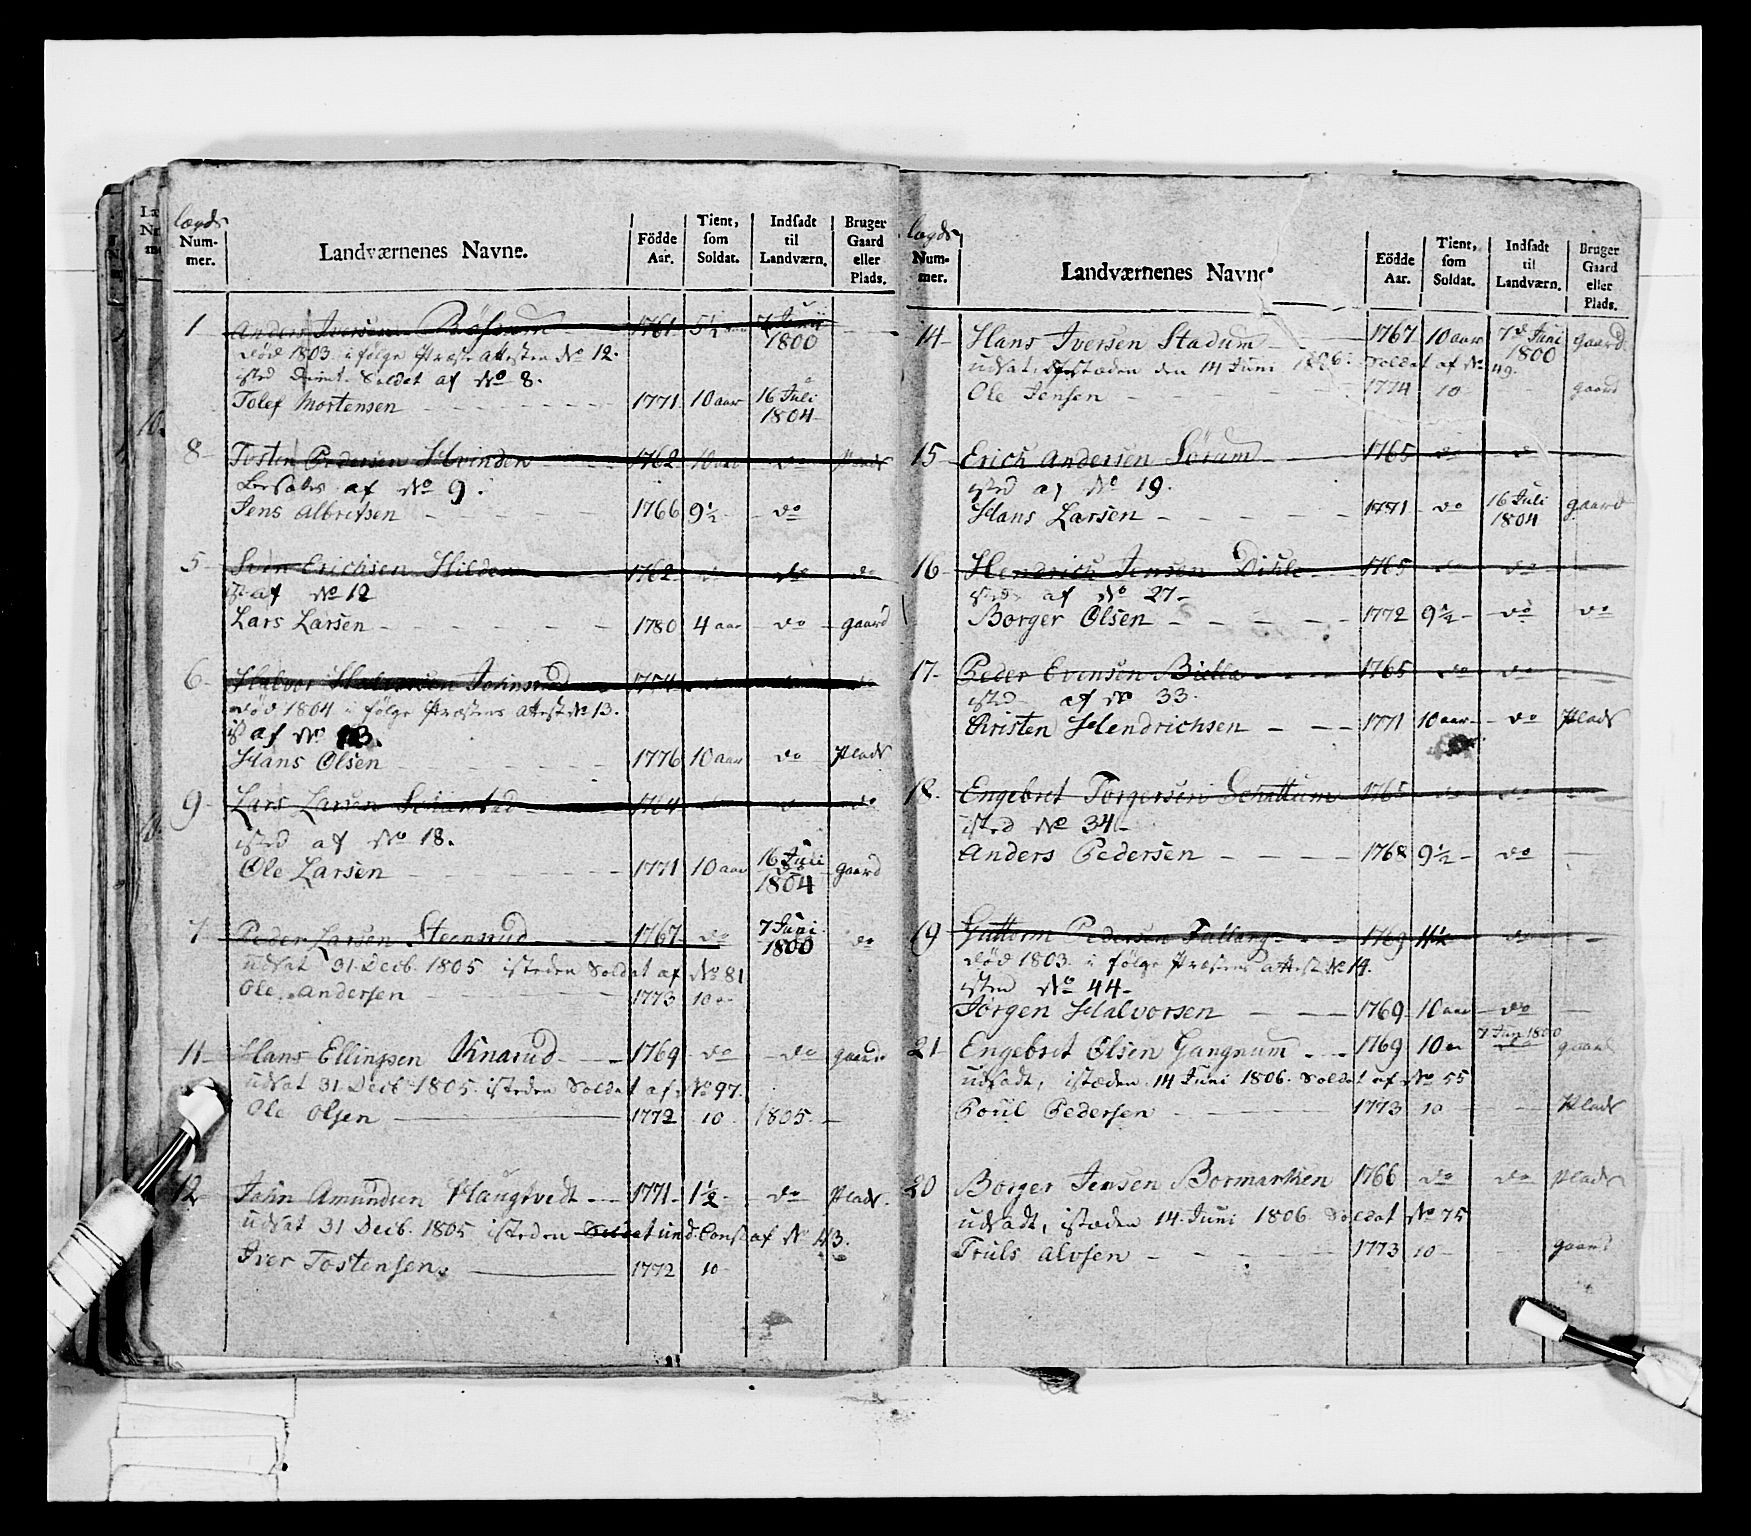 Lægds Num-mer. | Landværnenes Navne. | Födde Aar. | Tient, som Soldat. | Indsadt til Landværn. | Bruger Gaard eller Plads.
1 Anders Iversen 1761 5½ 7 Junii 1800
död 1803 i følge Præste Attesten No 12.
isted Soldat af No 8.
Tolef Mortensen 1771 10 aar 16 Juli 1804
8 Tosten Pedersen Hvinden 1762 10 aar do Plads
af No 9.
Jens Albretsen 1766 9½ do
5 Sven Erichsen Hilden 1762 do do do
ist af No 12
Lars Larsen 1780 4 aar do gaard
6 Halvor Halvorsen 1774
död 1804 i følge Præstens Attest No 13.
ist af No 13.
Hans Olsen 1776 10 aar do Plads
9 Lars Larsen 1764 do
isted af No 18.
Ole Larsen 1771 10 aar 16 Juli 1804 gaard
7 Peder Larsen Steensrud 1767 do 7 Juni 1800 do
udsat 31 Decb. 1805 isteden Soldat af No 81
Ole Andersen 1773 10
11 Hans Ellingsen Knarud 1769 do do gaard
udsat 31 Decb. 1805 isteden Soldat af No 97.
Ole Olsen 1772 10 1805
12 Jahn Amundsen Haugtvedt 1771 1½ do Plads
udsat 31 Decb. 1805 isteden Soldat und. Cons af No 43.
Iver Tostensen 1772 10
Lægds Num-mer. | Landværnenes Navne | Födde Aar. | Tient, som Soldat. | Indsadt til Landværn. | Bruger Gaard eller Plads.
14 Hans Iversen Stadum 1767 10 aar 7d Juni 1800 gaard
udsat, istæden den 14 Juni 1806. Soldat af No 49.
Ole Jensen 1774 10 gaard
15 Erich Andersen Sörum 1765 do do
isted af No 19.
Hans Larsen 1771 do 16 Juli 1804 gaard
16 Hendrich Jensen 1765 do do
isted af No 27
Borger Olsen 1772 9½ do do
17 Peder Evensen 1765 do do
isted af No 33.
Christen Hendrichsen 1771 10 aar do Plads
18. Engebret Torgersen 1765 do do
isted No 34
Anders Pedersen 1768 9½ do
19 Guttorm Pedersen 1769 11½ do
död 1803 i følge Præstens attest No 14.
isted No 44
Jörgen Halvorsen 1769 10 aar do
21 Engebret Olsen Gangnum 1769 10 7 Jun 1800 gaard
udsadt, istæden 14 Juni 1806. Soldat af No 55
Poul Pedersen 1773 10 Plads
20 Borger Jensen Bormarken 1766 do do Plads
udsadt, istæden 14 Juni 1806 Soldat No 75
Truls Alvsen 1773 10 gaard